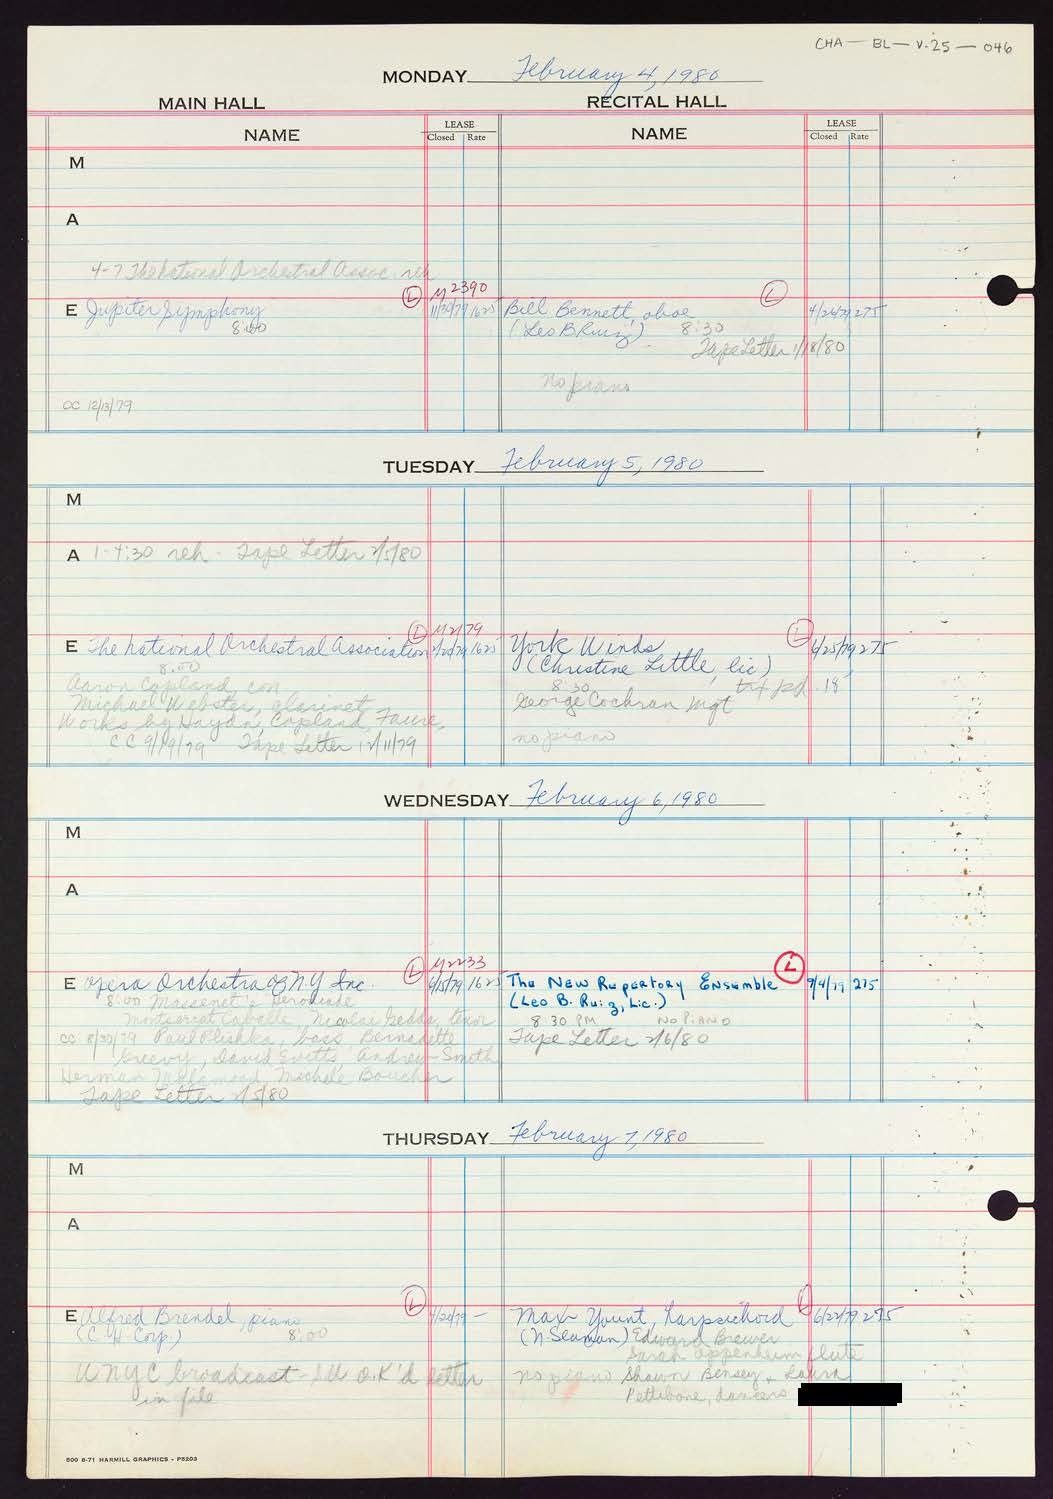 CHA — BL — V.25 — 046
MONDAY February 4, 1980
MAIN HALL RECITAL HALL
NAME LEASE Closed Rate NAME LEASE Closed Rate
M
A
4-7 The National Orchestral Assoc. reh
L M2390 L
E Jupiter Symphony 11/30/79 1625 Bill Bennett, oboe 4/24/79 275
8:00 (Leo B Ruiz) 8:30
Tape Letter 1/18/80
no piano
CC 12/13/79
TUESDAY February 5, 1980
M
A 1-4:30 reh - Tape Letter 2/5/80
L M2179 L
E The National Orchestral Association 1625 York Winds 6/25/79 275
8:00 (Christine Little, lic)
Aaron Copland, con 8:30 pd. 18
Michael Webster, clarinet George Cochran Mgt
Works by Haydn, Copland, Faure,
CC 9/19/79 Tape Letter 12/11/79 no piano
WEDNESDAY February 6, 1980
M
A
L M2233 L
E Opera Orchestra of N.Y. Inc. 6/15/79 1625 The New Repertory Ensemble 9/4/79 275
8:00 Massenet's Herodiade (Leo B. Ruiz, Lic.)
Montserrat Caballe, Nicolai Gedda, tenor 8:30 PM No Piano
CC 8/30/79 Paul Plishka, bass Bernadette Tape Letter 2/6/80
Greevy, David Evitts, Andrew Smith,
Herman Michele Boucher
Tape Letter 2/5/80
THURSDAY February 7, 1980
M
A
L L
E Alfred Brendel, piano 4/20/79 - Max Yount, harpsichord 6/22/79 295
(C. H. Corp.) 8:00 (N. Seaman) Edward Brewer
Sarah Oppenheim flute
WNYC broadcast - O.K'd letter no piano Shawn Bensey + Laura
in file Pettibone, dancers
500 8-71 HARMILL GRAPHICS - P5203